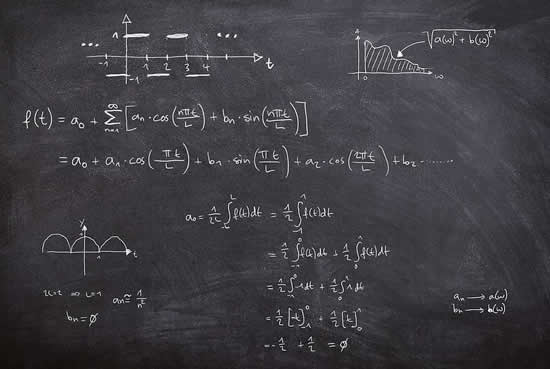 1
... ...
-1 1 2 3 4 t
-1
A √(a(ω)² + b(ω)²)
0 ω
f(t) = a₀ + ∑ₙ₌₁^∞ [aₙ·cos(nπt/L) + bₙ·sin(nπt/L)]
= a₀ + a₁·cos(πt/L) + b₁·sin(πt/L) + a₂·cos(2πt/L) + b₂·.......
a₀ = 1/2L ∫₋L^L f(t)dt = 1/2 ∫₋₁^1 f(t)dt
= 1/2 ∫₋₁^0 f(t)dt + 1/2 ∫₀^1 f(t)dt
y
1 t
= 1/2 ∫₋₁^0 -1dt + 1/2 ∫₀^1 1dt
2L=2 ⇒ L=1 aₙ ≈ 1/n²
bₙ = ∅
= 1/2 [-t]₋₁^0 + 1/2 [t]₀^1
= -1/2 + 1/2 = ∅
aₙ → a(ω)
bₙ → b(ω)